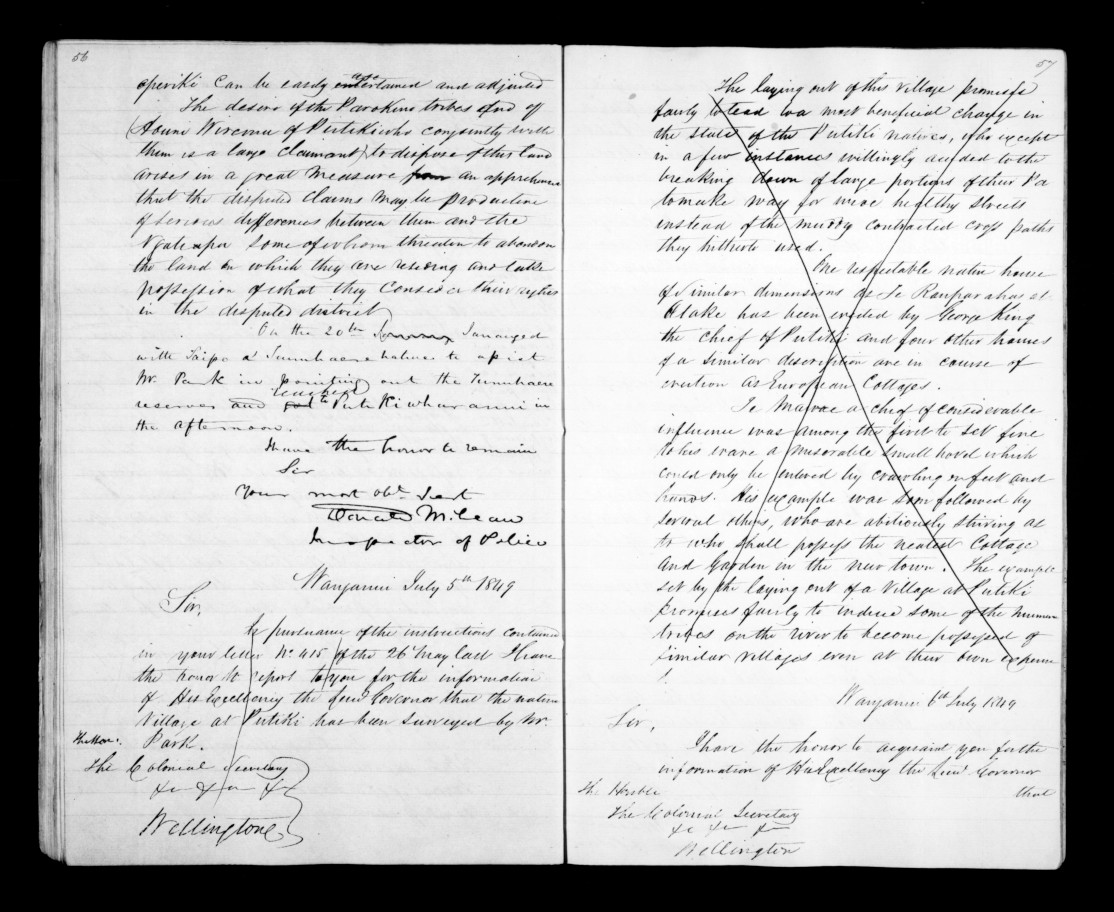 56
operiki can be easily entertained and adjusted
are
The desire of the Parokino tribes and of
(Hoani Wiremu of Putiki who conjointly with
them is a large claimant) to dispose of this land
arises in a great measure from an apprehension
that the disputed claims may be productive
of serious differences between them and the
Ngateapa some of whom threaten to abandon
the land on which they are residing and take
possession of what they consider their rights
in the disputed district
On the 20th I arranged
with Taipo & Tumuhaere natives to assist
Mr. Park in pointing out the Tumuhaere
reserves and reached Putiki wharanui in
the afternoon.
I have the honor to remain
Sir
Your most obt. Servt
Donald McLean
Inspector of Police
Wanganui July 5th 1849
Sir,
In pursuance of the instructions contained
in your letter No. 415 of the 26 May last I have
the honor to report to you for the information
of His Excellency the Lieut Governor that the native
Village at Putiki has been surveyed by Mr.
Park.
The Hon.
The Colonial Secretary
&c &c &c
Wellington
57
The laying out of this Village promises
fairly to lead to a most beneficial change in
the state of the Putiki natives, who except
in a few instances willingly acceded to the
breaking down of large portions of their Pa
to make way for more healthy streets
instead of the muddy contracted cross paths
they hitherto used.
One respectable native house
of similar dimensions as Te Rauparahas at
Otake has been erected by George King
the chief of Putiki and four other houses
of a similar description are in course of
erection as European Cottages.
Te Mawae a chief of considerable
influence was among the first to set fire
to his warre a miserable small hovel which
could only be entered by crawling on feet and
hands. His example was soon followed by
several others, who are abitiously striving as
to who shall possess the neatest Cottage
and Garden in the new town. The example
set by the laying out of a Village at Putiki
promises fairly to induce some of the numerous
tribes on the river to become possessed of
similar villages even at their own expense
Wanganui 6th July 1849
Sir,
I have the honor to acquaint you for the
information of His Excellency the Lieut Governor
that
The Honble
The Colonial Secretary
&c &c &c
Wellington